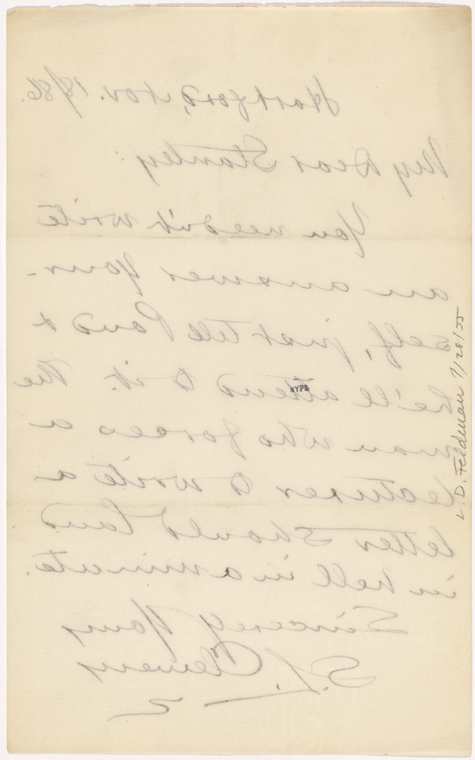 Hartford, Nov. 18/86.
My Dear Stanley:
You needn't write
an answer your-
self, just tell Pond &
he'll attend to it. The
man who forces a
lecturer to write a
letter should land
in hell in a minute.
Sincerely Yours
S. L. Clemens
NYPL
L. D. Feldman 7/28/55